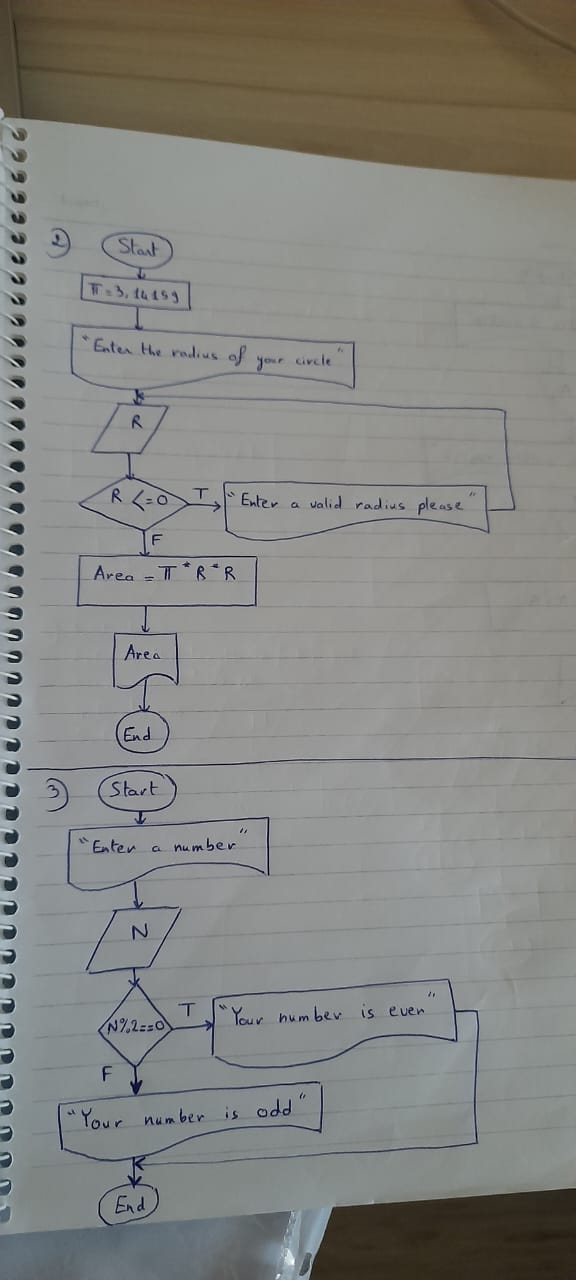 2)
Start
π = 3,14159
"Enter the radius of your circle"
R
R <=0
T
"Enter a valid radius please"
F
Area = π * R * R
Area
End
3)
Start
"Enter a number"
N
N%2==0
T
"Your number is even"
F
"Your number is odd"
End